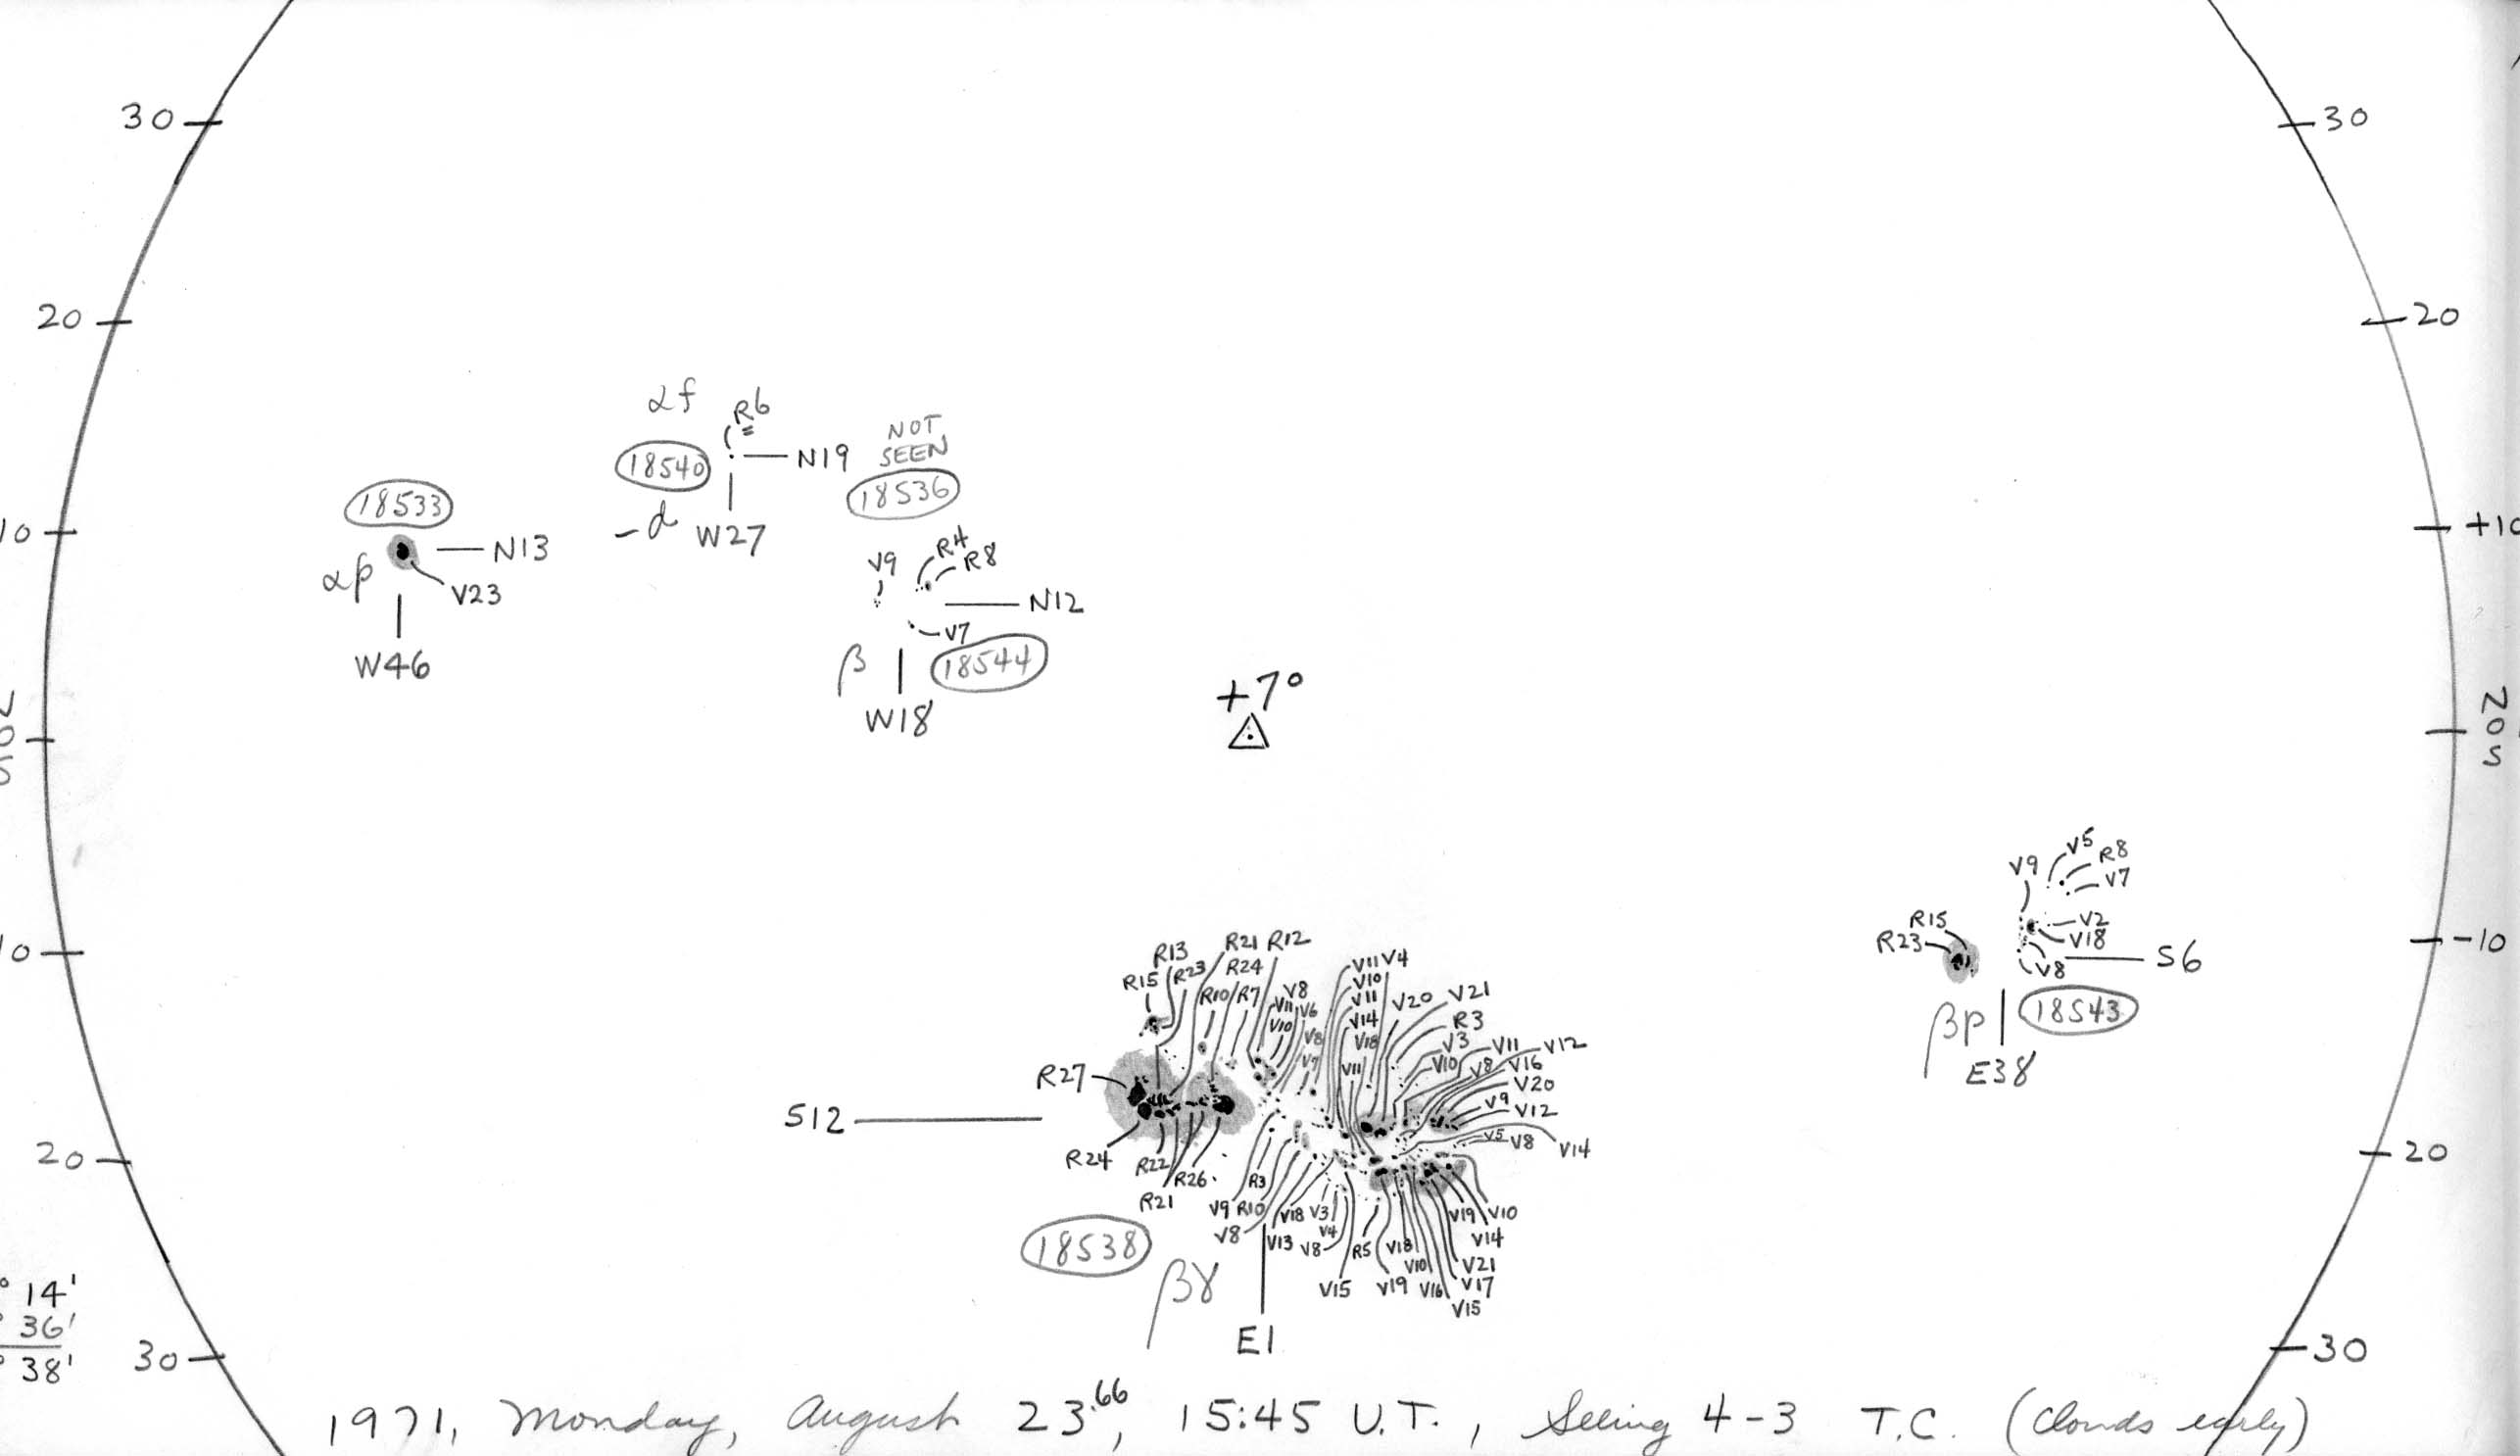 30
30
20
20
αf
R6
NOT
SEEN
18540
N19
18536
18533
-d
W27
10
+10
N13
αp
V23
V9
R4
R8
N12
V7
W46
β
18544
W18
+7°
N
O
S
N
O
S
V5
V9
R8
V7
R15
R23
V2
V18
V8
S6
10
-10
βp
18543
E38
R13
R21 R12
R15
R23
R24
R10
R7
V8
V11
V6
V10
V8
V7
V11
V4
V10
V11
V14
V18
V11
V20
V21
R3
V3
V10
V11
V12
V8
V16
V20
V9
V12
V5
V8
V14
R27
S12
R24
R22
R26
R21
R3
V9
R10
V8
V18
V3
V13
V4
V8
R5
V18
V19
V10
V14
V10
V21
V15
V19
V16
V17
V15
20
20
18538
βγ
E1
14'
36'
38'
30
30
1971, Monday, August 23.66, 15:45 U.T., Seeing 4-3 T.C. (Clouds early)